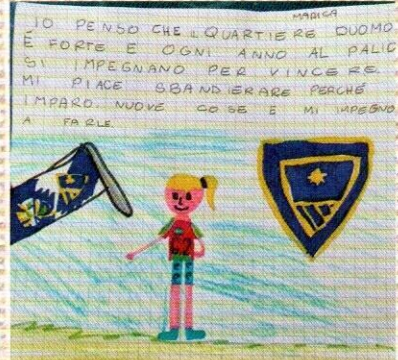 MARICA
IO PENSO CHE IL QUARTIERE DUOMO
È FORTE E OGNI ANNO AL PALIO
SI IMPEGNANO PER VINCERE.
MI PIACE SBANDIERARE PERCHÉ
IMPARO NUOVE COSE E MI IMPEGNO
A FARLE